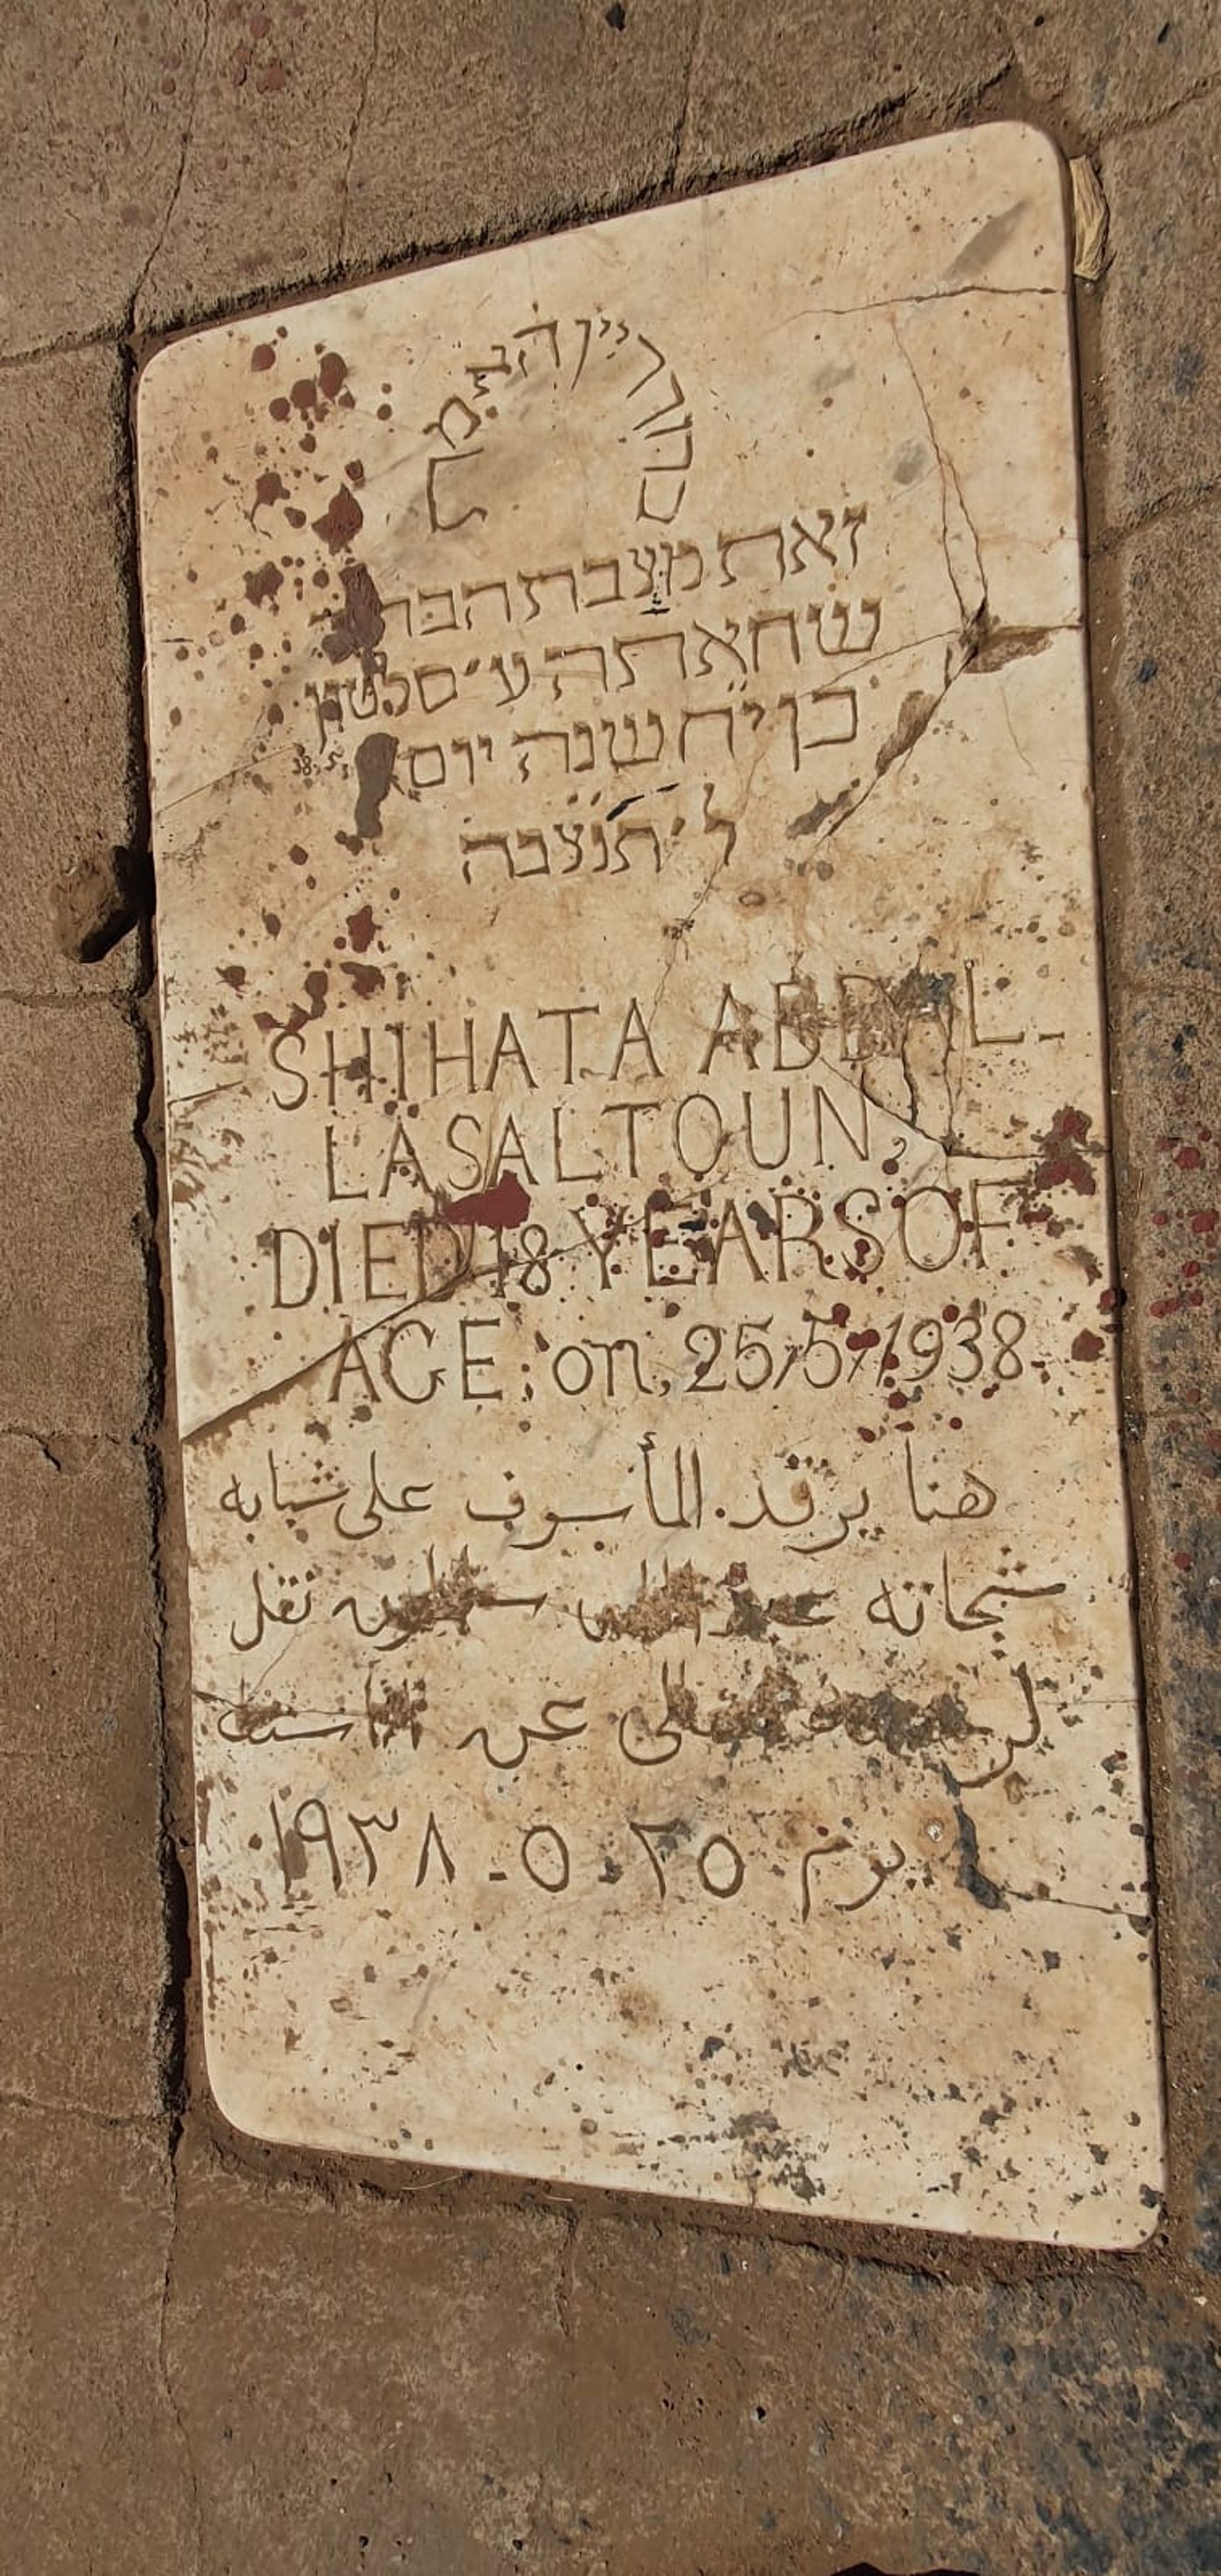 זאת מצבת הבח
שחאתה ע׳ סלטון
בן י״ח שנה יום
ל׳ תנצבה
SHIHATA ABDAL-
LASALTOUN,
DIED 18 YEARS OF
AGE; on, 25/5/1938.
هنا يرقد المأسوف على شبابه
شحاته عبدالله سلطون نقل
لرحمته تعالى عن ١٨ سنه
يوم ٢٥ - ٥ - ١٩٣٨